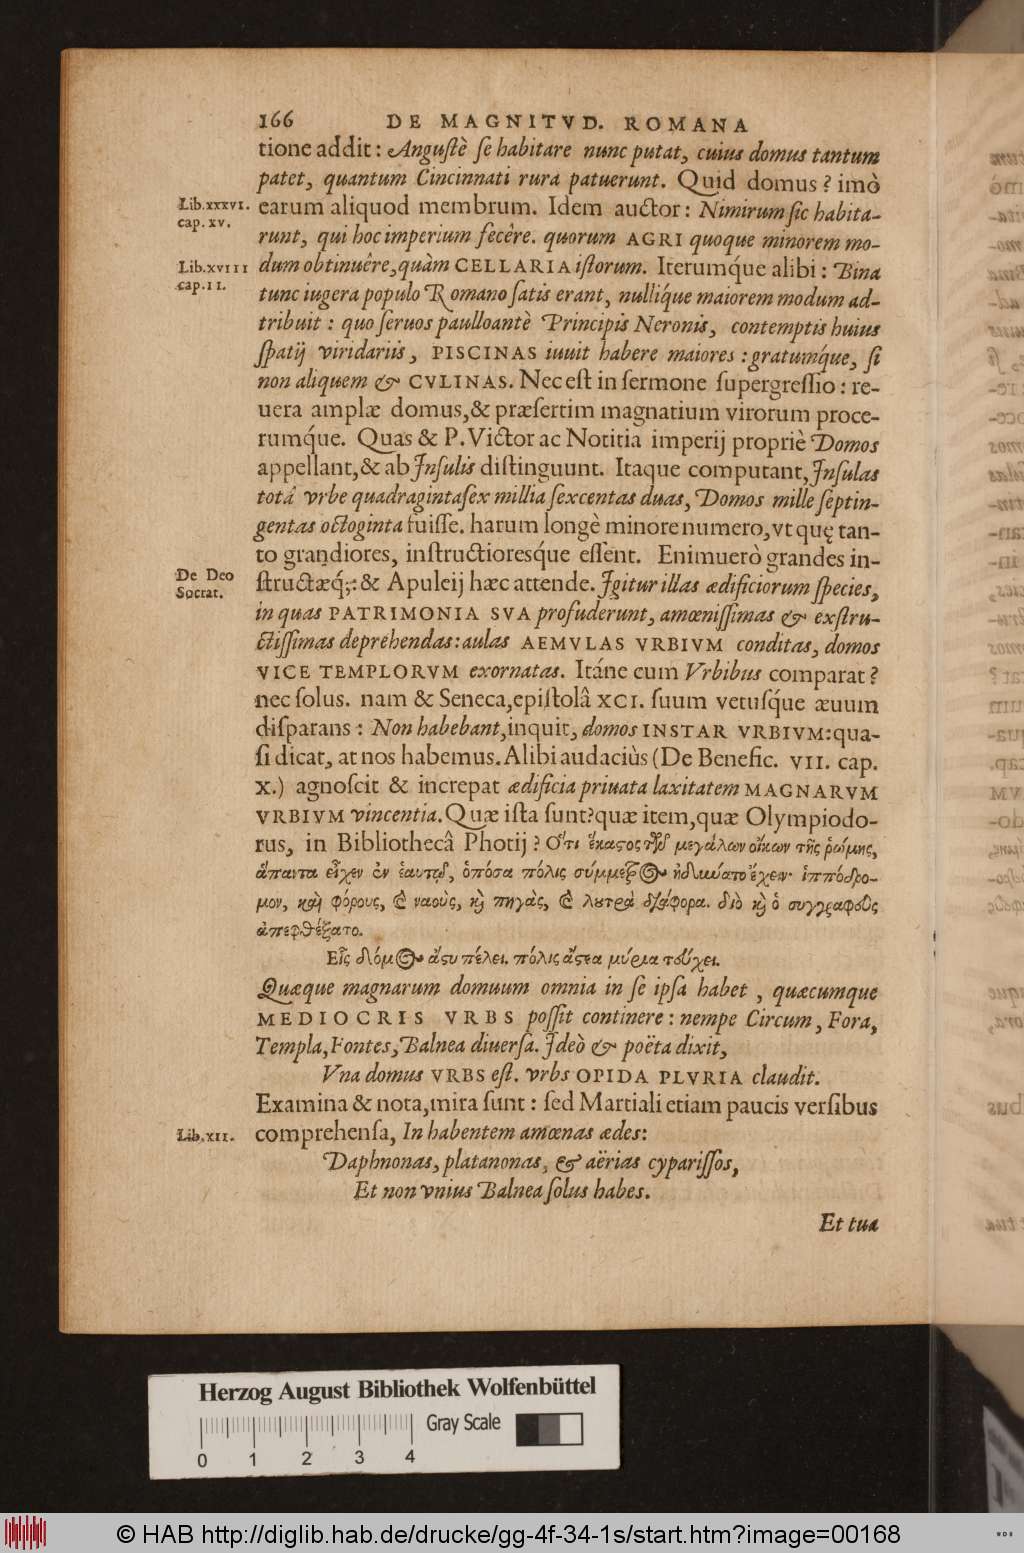 166 DE MAGNITVD. ROMANA
tione addit: Angustè se habitare nunc putat, cuius domus tantum
patet, quantum Cincinnati rura patuerunt. Quid domus? imò
Lib.xxxvi. cap. xv.
earum aliquod membrum. Idem auctor: Nimirum sic habita-
runt, qui hoc imperium fecêre. quorum AGRI quoque minorem mo-
Lib.xviii cap.ii.
dum obtinuêre, quàm CELLARIA istorum. Iterumq́ue alibi: Bina
tunc iugera populo Romano satis erant, nulliq́ue maiorem modum ad-
tribuit: quo seruos paulloantè Principis Neronis, contemptis huius
spatij viridariis, PISCINAS iuuit habere maiores: gratumq́ue, si
non aliquem & CVLINAS. Nec est in sermone supergressio: re-
uera amplæ domus, & præsertim magnatium virorum proce-
rumq́ue. Quas & P. Victor ac Notitia imperij propriè Domos
appellant, & ab Insulis distinguunt. Itaque computant, Insulas
totâ vrbe quadragintasex millia sexcentas duas, Domos mille septin-
gentas octoginta fuisse. harum longè minore numero, vt quę tan-
to grandiores, instructioresq́ue essent. Enimuerò grandes in-
De Deo Socrat.
structæq́;: & Apuleij hæc attende. Igitur illas ædificiorum species,
in quas PATRIMONIA SVA profuderunt, amœnissimas & exstru-
ctissimas deprehendas: aulas AEMVLAS VRBIVM conditas, domos
VICE TEMPLORVM exornatas. Itáne cum Vrbibus comparat?
nec solus. nam & Seneca, epistolâ XCI. suum vetusq́ue æuum
disparans: Non habebant, inquit, domos INSTAR VRBIVM: qua-
si dicat, at nos habemus. Alibi audaciùs (De Benefic. VII. cap.
X.) agnoscit & increpat ædificia priuata laxitatem MAGNARVM
VRBIVM vincentia. Quæ ista sunt? quæ item, quæ Olympiodo-
rus, in Bibliothecâ Photij? Ὅτι ἕκαστος τῶν μεγάλων οἴκων τῆς ῥώμης,
ἅπαντα εἶχεν ἐν ἑαυτῷ, ὁπόσα πόλις σύμμετρος ἠδύνατο ἔχειν· ἱππόδρο-
μον, καὶ φόρους, καὶ ναοὺς, καὶ πηγὰς, καὶ λουτρὰ διάφορα. διὸ καὶ ὁ συγγραφεὺς
ἀπεφθέγξατο.
Εἷς δόμος ἄστυ πέλει. πόλις ἄστεα μύρια τεύχει.
Quæque magnarum domuum omnia in se ipsa habet, quæcumque
MEDIOCRIS VRBS possit continere: nempe Circum, Fora,
Templa, Fontes, Balnea diuersa. Ideò & poëta dixit,
Vna domus VRBS est. vrbs OPIDA PLVRIA claudit.
Examina & nota, mira sunt: sed Martiali etiam paucis versibus
Lib.xii.
comprehensa, In habentem amœnas ædes:
Daphnonas, platanonas, & aërias cyparissos,
Et non vnius Balnea solus habes.
Et tua
Herzog August Bibliothek Wolfenbüttel
Gray Scale
0 1 2 3 4
© HAB http://diglib.hab.de/drucke/gg-4f-34-1s/start.htm?image=00168